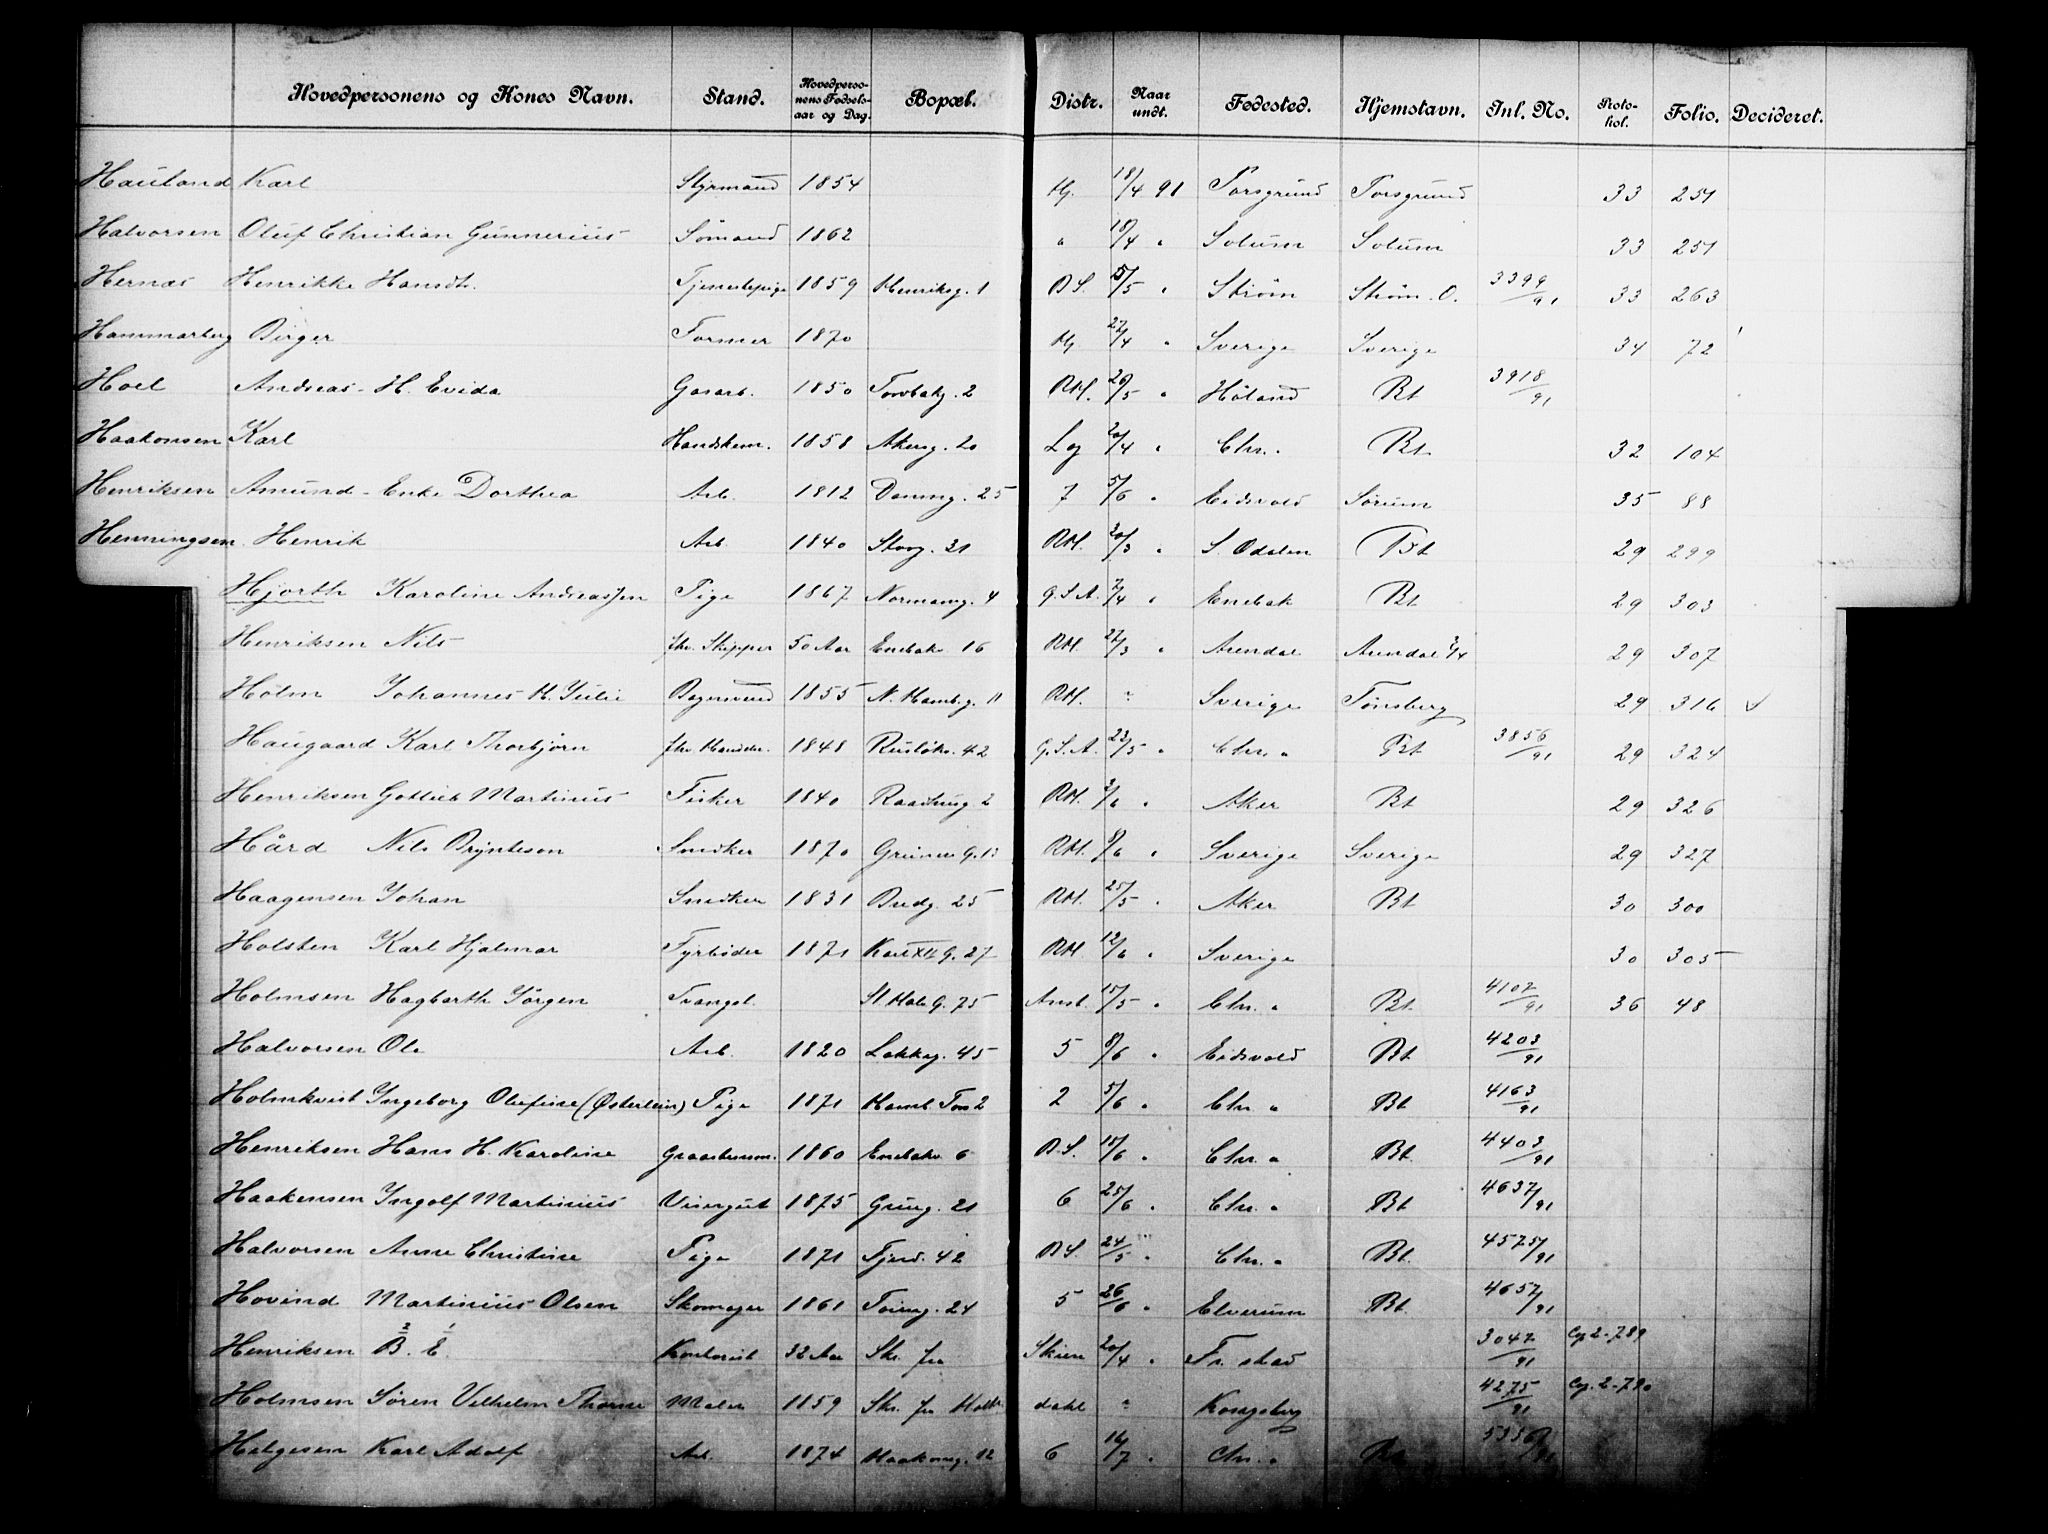 Hovedpersonens og Kones Navn. Stand. Hovedpersonens Fødselsaar og Dag. Bopæl. Distr. Naar undt. Fødested. Hjemstavn. Inl. No. Protokol. Folio. Decideret.
Hauland Karl Styrmand 1854 Hj. 18/4 91 Porsgrund Porsgrund 33 251
Halvorsen Oluf Christian Gunnerius Sömand 1862 " 18/4 " Solum Solum 33 251
Hernæs Henrikke Hansdt. Tjenestepige 1859 Henriksg. 1 B.S. 5/5 " Ström Ström. O. 3399/91 33 263
Hammarberg Birger Former 1870 Hj 22/4 " Sverige Sverige 34 72
Hoel Andreas - H. Evida Gasarb. 1850 Torvbakg. 2 RH. 20/5 " Höland Bt 3918/91
Haakonsen Karl Handskem. 1858 Akersg. 20 Lg 20/4 " Chr. " Bt. 32 104
Henriksen Amund - Enke Dorthea Arb. 1812 Dæning. 25 7 5/6 " Eidsvold Sørum 35 88
Henningsen Henrik Arb. 1840 Storg. 31 RH. 20/3 " S. Odalen Bt 29 299
Hjorth Karoline Andreassen Pige 1867 Normansg. 4 G.S.A. 7/4 " Enebak Bt 29 303
Henriksen Nils fhv. Skipper 50 Aar Enebakv. 16 RH. 27/3 " Arendal Arendal 3/4 29 307
Holm Johannes H. Julie Bogersvend 1855 N. Hambg. 11 RH. " Sverige Tønsberg 29 316
Haugaard Karl Thorbjörn fhv. Handelsr. 1848 Ruselökv. 42 G.S.A. 23/5 " Chr. " Bt 3856/91 29 324
Henriksen Gotlieb Martinius Fisker 1840 Raadhusg 2 RH. 3/6 " Aker Bt 29 326
Hård Nils Brynteson Snedker 1870 Grüners G. 13 RH. 8/6 " Sverige Sverige 29 327
Haagensen Johan Snedker 1831 Bredg. 25 RH. 25/5 " Aker Bt 30 300
Holsten Karl Hjalmar Fyrböder 1871 Karl XII G. 27 RH 12/6 " Sverige 30 305
Holmsen Hagbarth Jörgen Tvangsl. St. Hal. G. 75 Anst. 15/5 " Chr. " Bt. 4107/91 36 48
Halvorsen Ole Arb. 1820 Lakkeg. 45 5 8/6 " Eidsvold Bt 4203/91
Holmkvist Ingeborg Olufine (Österlein) Pige 1871 Hamb. Tor. 2 2 5/6 " Chr. " Bt 4163/91
Henriksen Hans H. Karoline Graastensm. 1860 Enebakv 6 B.S. 15/6 " Chr. " Bt. 4403/91
Haakensen Ingolf Martinius Visergut 1875 Grung. 21 6 25/6 " Chr. " Bt 4637/91
Halvorsen Anne Christine Pige 1871 Fjerd. 42 B.S. 24/5 " Chr. " Bt. 4575/91
Hovind Martinius Olsen Skomager 1861 Toieng. 24 5 26/6 " Elverum Bt. 4657/91
Henriksen B. E. Kontorist 32 Aar Skr. fra Skien 20/4 " Fr. stad 3047/91 Cop. 2-789
Holmsen Sören Vilhelm Thorne Maler 1859 Skr. fra Holt- dahl " Kongsberg 4275/91 Cop. 2-790
Helgesen Karl Adolf Arb. 1874 Haakonsg. 12 6 16/7 " Chr. " Bt